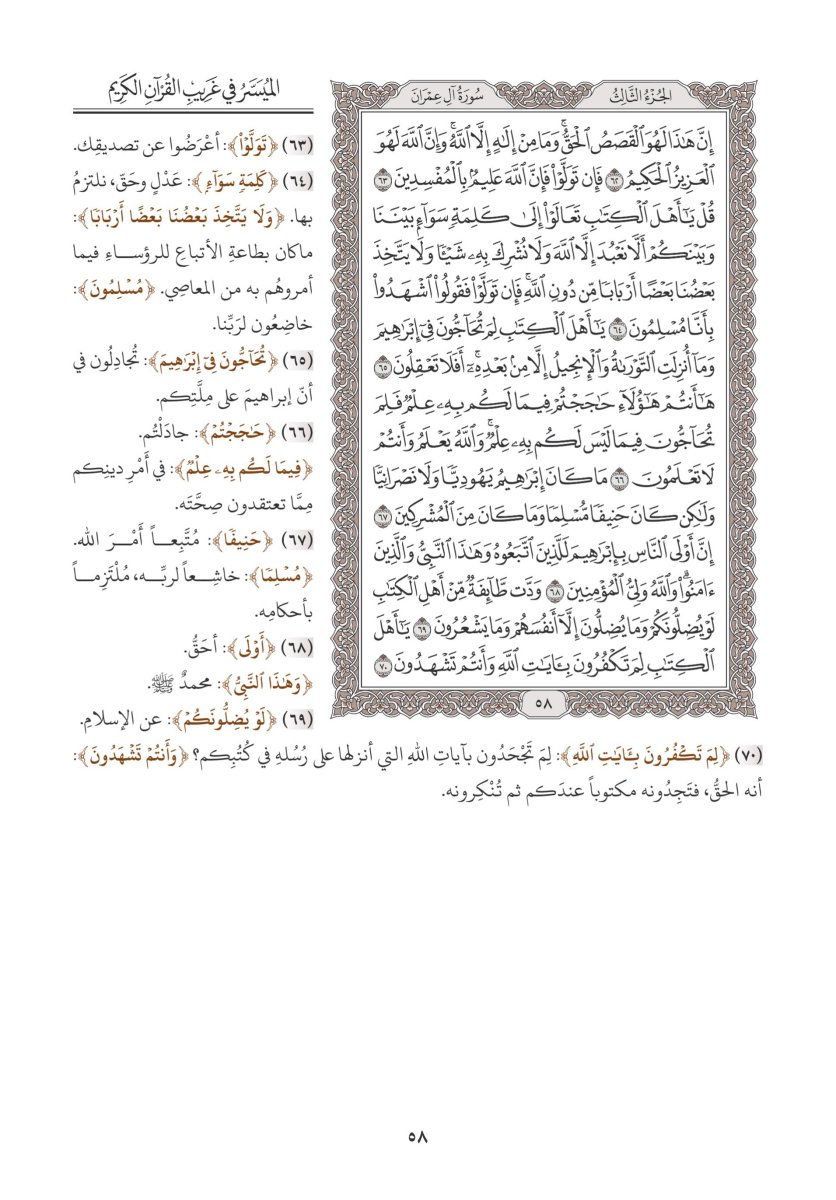 الجُزْءُ الثَّالِثُ
سُورَةُ آلِ عِمْرَانَ
إِنَّ هَٰذَا لَهُوَ ٱلْقَصَصُ ٱلْحَقُّۚ وَمَا مِنْ إِلَٰهٍ إِلَّا ٱللَّهُۚ وَإِنَّ ٱللَّهَ لَهُوَ
ٱلْعَزِيزُ ٱلْحَكِيمُ ٦٢ فَإِن تَوَلَّوْاْ فَإِنَّ ٱللَّهَ عَلِيمٌۢ بِٱلْمُفْسِدِينَ ٦٣
قُلْ يَٰٓأَهْلَ ٱلْكِتَٰبِ تَعَالَوْاْ إِلَىٰ كَلِمَةٖ سَوَآءِۭ بَيْنَنَا
وَبَيْنَكُمْ أَلَّا نَعْبُدَ إِلَّا ٱللَّهَ وَلَا نُشْرِكَ بِهِۦ شَيْـٔٗا وَلَا يَتَّخِذَ
بَعْضُنَا بَعْضًا أَرْبَابٗا مِّن دُونِ ٱللَّهِۚ فَإِن تَوَلَّوْاْ فَقُولُواْ ٱشْهَدُواْ
بِأَنَّا مُسْلِمُونَ ٦٤ يَٰٓأَهْلَ ٱلْكِتَٰبِ لِمَ تُحَآجُّونَ فِيٓ إِبْرَٰهِيمَ
وَمَآ أُنزِلَتِ ٱلتَّوْرَىٰةُ وَٱلْإِنجِيلُ إِلَّا مِنۢ بَعْدِهِۦٓۚ أَفَلَا تَعْقِلُونَ ٦٥
هَٰٓأَنتُمْ هَٰٓؤُلَآءِ حَٰجَجْتُمْ فِيمَا لَكُم بِهِۦ عِلْمٞ فَلِمَ
تُحَآجُّونَ فِيمَا لَيْسَ لَكُم بِهِۦ عِلْمٞۚ وَٱللَّهُ يَعْلَمُ وَأَنتُمْ
لَا تَعْلَمُونَ ٦٦ مَا كَانَ إِبْرَٰهِيمُ يَهُودِيّٗا وَلَا نَصْرَانِيّٗا
وَلَٰكِن كَانَ حَنِيفٗا مُّسْلِمٗا وَمَا كَانَ مِنَ ٱلْمُشْرِكِينَ ٦٧
إِنَّ أَوْلَى ٱلنَّاسِ بِإِبْرَٰهِيمَ لَلَّذِينَ ٱتَّبَعُوهُ وَهَٰذَا ٱلنَّبِيُّ وَٱلَّذِينَ
ءَامَنُواْۗ وَٱللَّهُ وَلِيُّ ٱلْمُؤْمِنِينَ ٦٨ وَدَّت طَّآئِفَةٞ مِّنْ أَهْلِ ٱلْكِتَٰبِ
لَوْ يُضِلُّونَكُمْ وَمَا يُضِلُّونَ إِلَّآ أَنفُسَهُمْ وَمَا يَشْعُرُونَ ٦٩ يَٰٓأَهْلَ
ٱلْكِتَٰبِ لِمَ تَكْفُرُونَ بِـَٔايَٰتِ ٱللَّهِ وَأَنتُمْ تَشْهَدُونَ ٧٠
٥٨
المُيَسَّرُ في غَرِيبِ القُرْآنِ الكَرِيمِ
(٦٣) ﴿تَوَلَّوْاْ﴾: أعْرَضُوا عن تصديقِك.
(٦٤) ﴿كَلِمَةٖ سَوَآءِۭ﴾: عَدْلٍ وحَقّ، نلتزمُ
بها. ﴿وَلَا يَتَّخِذَ بَعْضُنَا بَعْضًا أَرْبَابٗا﴾:
ماكان بطاعةِ الأتباع للرؤساءِ فيما
أمروهُم به من المعاصي. ﴿مُسْلِمُونَ﴾:
خاضِعُون لرَبِّنا.
(٦٥) ﴿تُحَآجُّونَ فِيٓ إِبْرَٰهِيمَ﴾: تُجادِلُون في
أنّ إبراهيمَ على مِلَّتِكم.
(٦٦) ﴿حَٰجَجْتُمْ﴾: جادَلْتُم.
﴿فِيمَا لَكُم بِهِۦ عِلْمٞ﴾: في أمْرِ دينِكم
مِمَّا تعتقدون صِحَّتَه.
(٦٧) ﴿حَنِيفٗا﴾: مُتَّبِعاً أمْرَ الله.
﴿مُسْلِمٗا﴾: خاشِعاً لربِّه، مُلْتَزِماً
بأحكامِه.
(٦٨) ﴿أَوْلَى﴾: أحَقُّ.
﴿وَهَٰذَا ٱلنَّبِيُّ﴾: محمدٌ ﷺ.
(٦٩) ﴿لَوْ يُضِلُّونَكُمْ﴾: عن الإسلامِ.
(٧٠) ﴿لِمَ تَكْفُرُونَ بِـَٔايَٰتِ ٱللَّهِ﴾: لِمَ تَجْحَدُون بآياتِ اللهِ التي أنزلها على رُسُلهِ في كُتُبِكم؟ ﴿وَأَنتُمْ تَشْهَدُونَ﴾:
أنه الحقُّ، فتَجِدُونه مكتوباً عندَكم ثم تُنْكِرونه.
٥٨